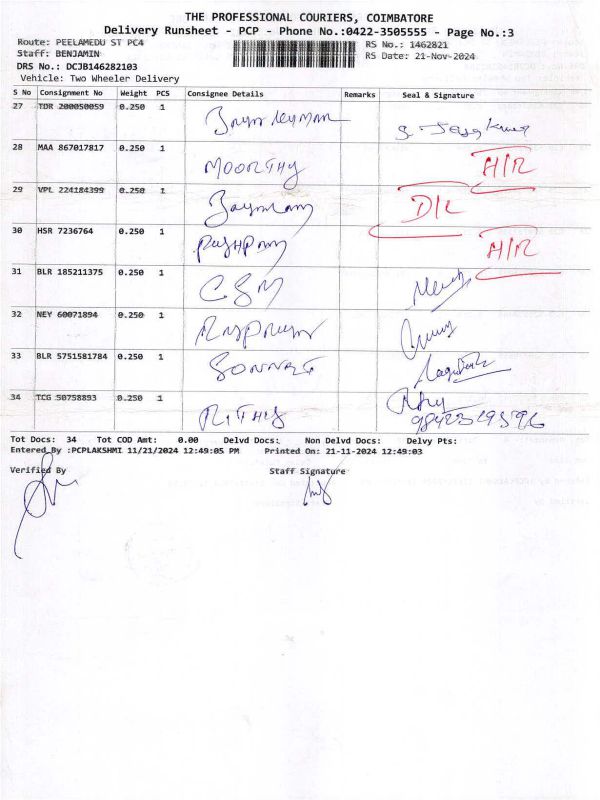 THE PROFESSIONAL COURIERS, COIMBATORE
Delivery Runsheet - PCP - Phone No.:0422-3505555 - Page No.:3
Route: PEELAMEDU ST PC4 RS No.: 1462821
Staff: BENJAMIN RS Date: 21-Nov-2024
DRS No.: DCJB146282103
Vehicle: Two Wheeler Delivery
S No Consignment No Weight PCS Consignee Details Remarks Seal & Signature
27 TDR 200050059 0.250 1
28 MAA 867017817 0.250 1 MOORTHY A/R
29 VPL 224184399 0.250 1 D/L
30 HSR 7236764 0.250 1 A/R
31 BLR 185211375 0.250 1
32 NEY 60071894 0.250 1
33 BLR 5751581784 0.250 1
34 TCG 50758893 0.250 1 RITHIS
Tot Docs: 34 Tot COD Amt: 0.00 Delvd Docs: Non Delvd Docs: Delvy Pts:
Entered By :PCPLAKSHMI 11/21/2024 12:49:05 PM Printed On: 21-11-2024 12:49:03
Verified By Staff Signature